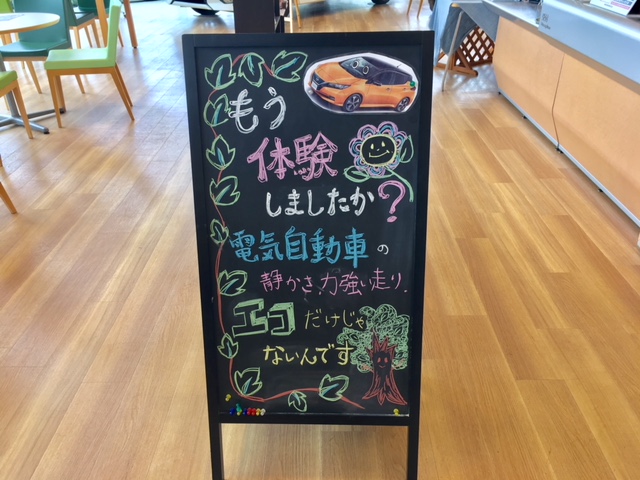 もう
体験
しましたか?
電気自動車の
静かさ、力強い走り、
エコだけじゃ
ないんです